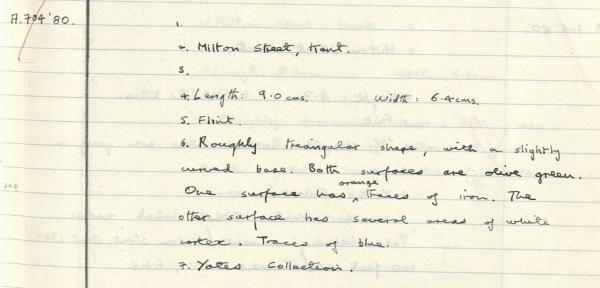 A.704'80.
1.
2. Milton Street, Kent.
3.
4. Length: 9.0 cms. Width: 6.4 cms.
5. Flint.
6. Roughly triangular shape, with a slightly
curved base. Both surfaces are olive green.
orange
One surface has traces of iron. The
704
other surface has several areas of white
cortex. Traces of blue.
7. Yates Collection.